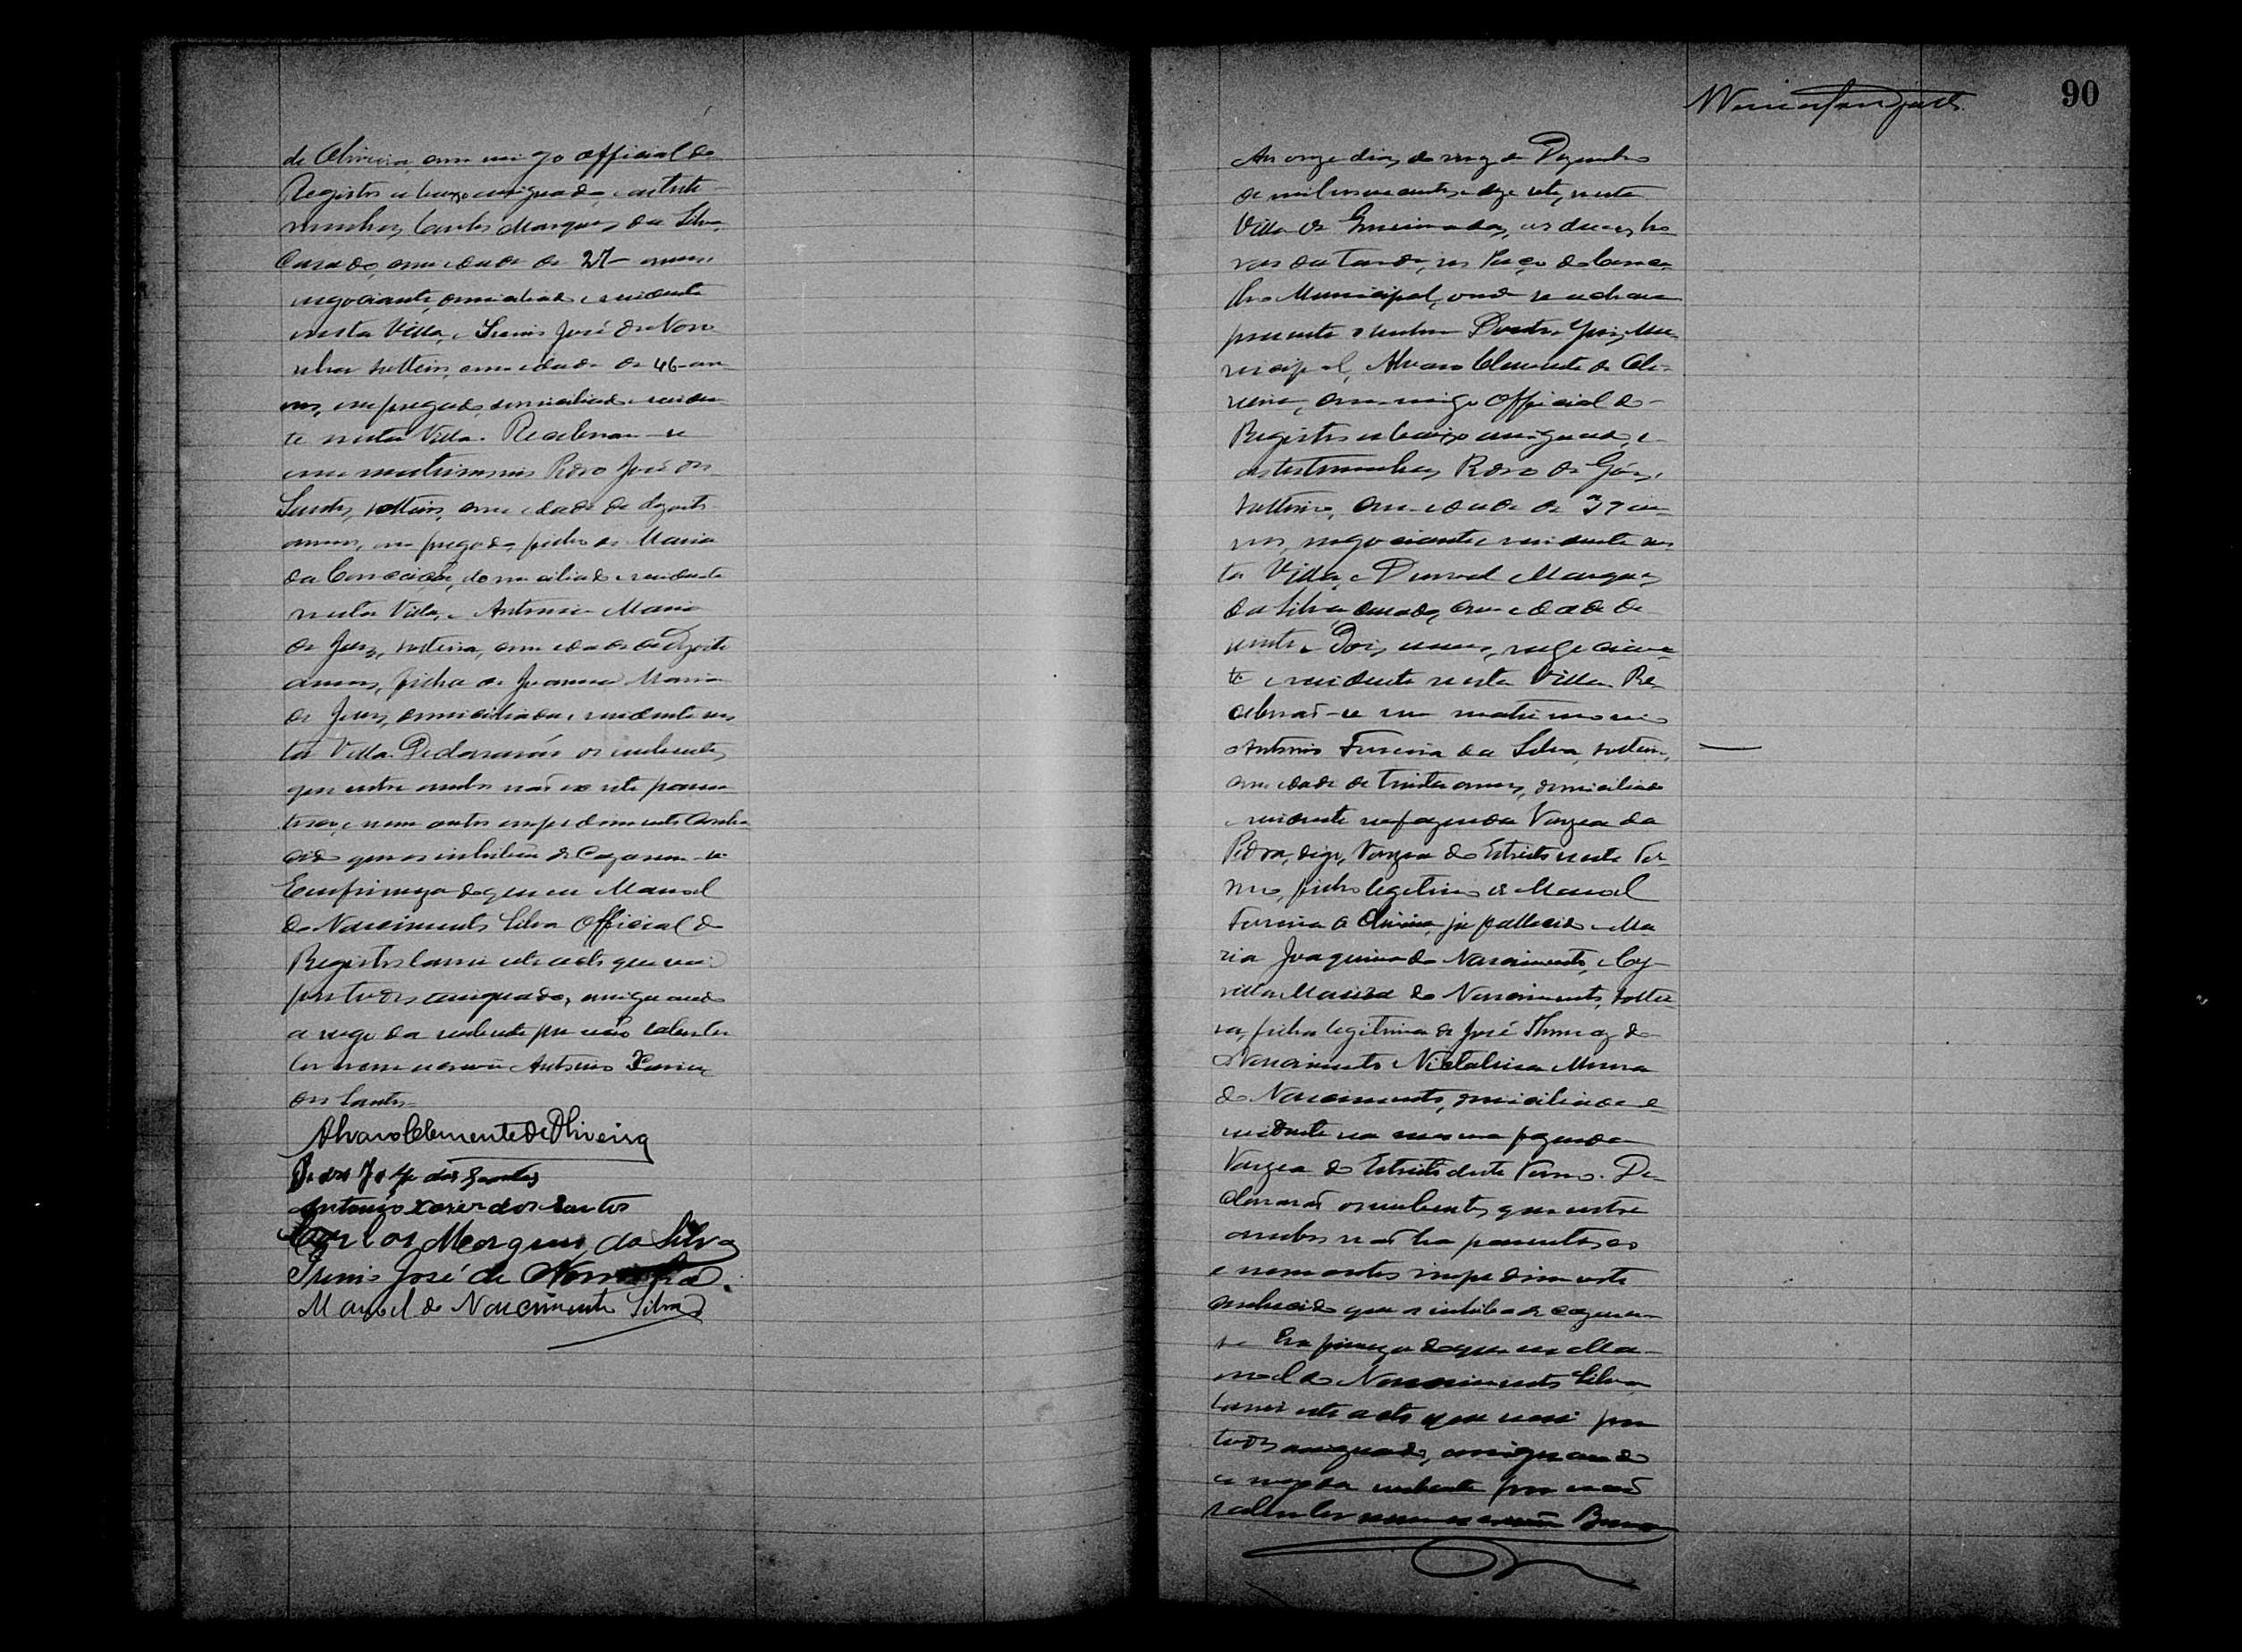 de Oliveira, commigo official do
Registro abaixo assignado, e as teste-
munhas, Carlos Marques da Silva,
Casado, com idade de 27 annos,
negociante, domiciliado e residente
nesta Villa, e Irenio José de Noro
nha solteiro, com idade de 46 an
nos, empregado, domiciliado e residen
te nesta Villa. Receberam-se
em matrimonio Pedro José dos
Santos, solteiro, com idade de dezoito
annos, empregado, filho de Maria
da Conceição, domiciliado e residente
nesta Villa, e Antonia Maria
de Jesus, solteira, com idade de dezoito
annos, filha de Joanna Maria
de Jesus, domiciliada e residente nes
ta Villa. Declararão os nubentes,
que entre ambos não existe paren
tesco, e nem outro impedimento conhe
cido que os inhibia de cazarem-se.
Em firmeza do que eu Manoel
do Nascimento Silva Official do
Registro lavrei este acto que vai
por todos assignado, assignando
a rogo da nubente por não saber
ler nem escrever Antonio Xavier
dos Santos.
Alvaro Clemente de Oliveira
Pedro José dos Santos
Antonio Xavier dos Santos
Carlos Marques da Silva
Irenio José de Noronha
Manoel do Nascimento Silva
90
Aos onze dias do mez de Dezembro
de mil novecentos e dezesete, nesta
Villa de Queimadas, as duas ho
ras da tarde, no Paço do Conse
lho Municipal, onde se achava
presente o senhor Doutor Juiz Mu
nicipal, Alvaro Clemente de Oli-
veira, commigo Official do
Registro abaixo assignado, e
as testemunhas Pedro de Góes,
solteiro, com idade de 37 an
nos, negociante e residente nes
ta Villa, e Durval Marques
da Silva, casado, com idade de
vinte e dois annos, negocian
te e residente nesta Villa. Re
ceberão-se em matrimonio
Antonio Ferreira da Silva, solteiro,
com idade de trinta annos, domiciliado
e residente na fazenda Varzea da
Pedra, digo, Varzea do Estreito neste Ter
mo, filho legitimo de Manoel
Ferreira de Oliveira, já fallecido e Ma
ria Joaquina do Nascimento, e
Maria do Nascimento, soltei
ra, filha legitima de José Thomaz do
Nascimento e Moura
do Nascimento, domiciliada e
residente na mesma fazenda
Varzea do Estreito deste Termo. De
clararão os nubentes, que entre
ambos não ha parentesco
e nem outro impedimento
conhecido que os inhiba de cazarem
se. Em firmeza do que eu Ma
noel do Nascimento Silva
lavrei este acto que vai por
todos assignado, assignando
a rogo da nubente por não
saber ler nem escrever